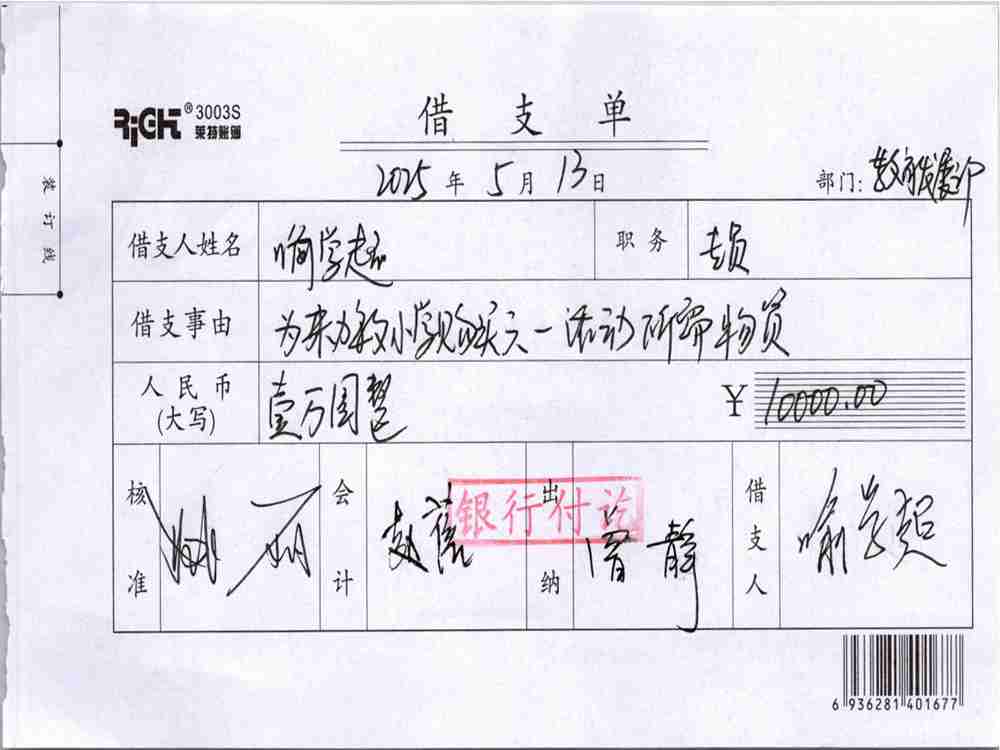 RiGHT®3003S
莱特账簿
借支单
2025年5月13日
部门:教育发展部
装订线
借支人姓名 喻学超 职务 专员
借支事由 为来办教小学购买六一活动所需物资
人民币(大写) 壹万圆整 ¥10000.00
核准
会计 赵
银行付讫
出纳 曾静
借支人 喻学超
6 936281 401677